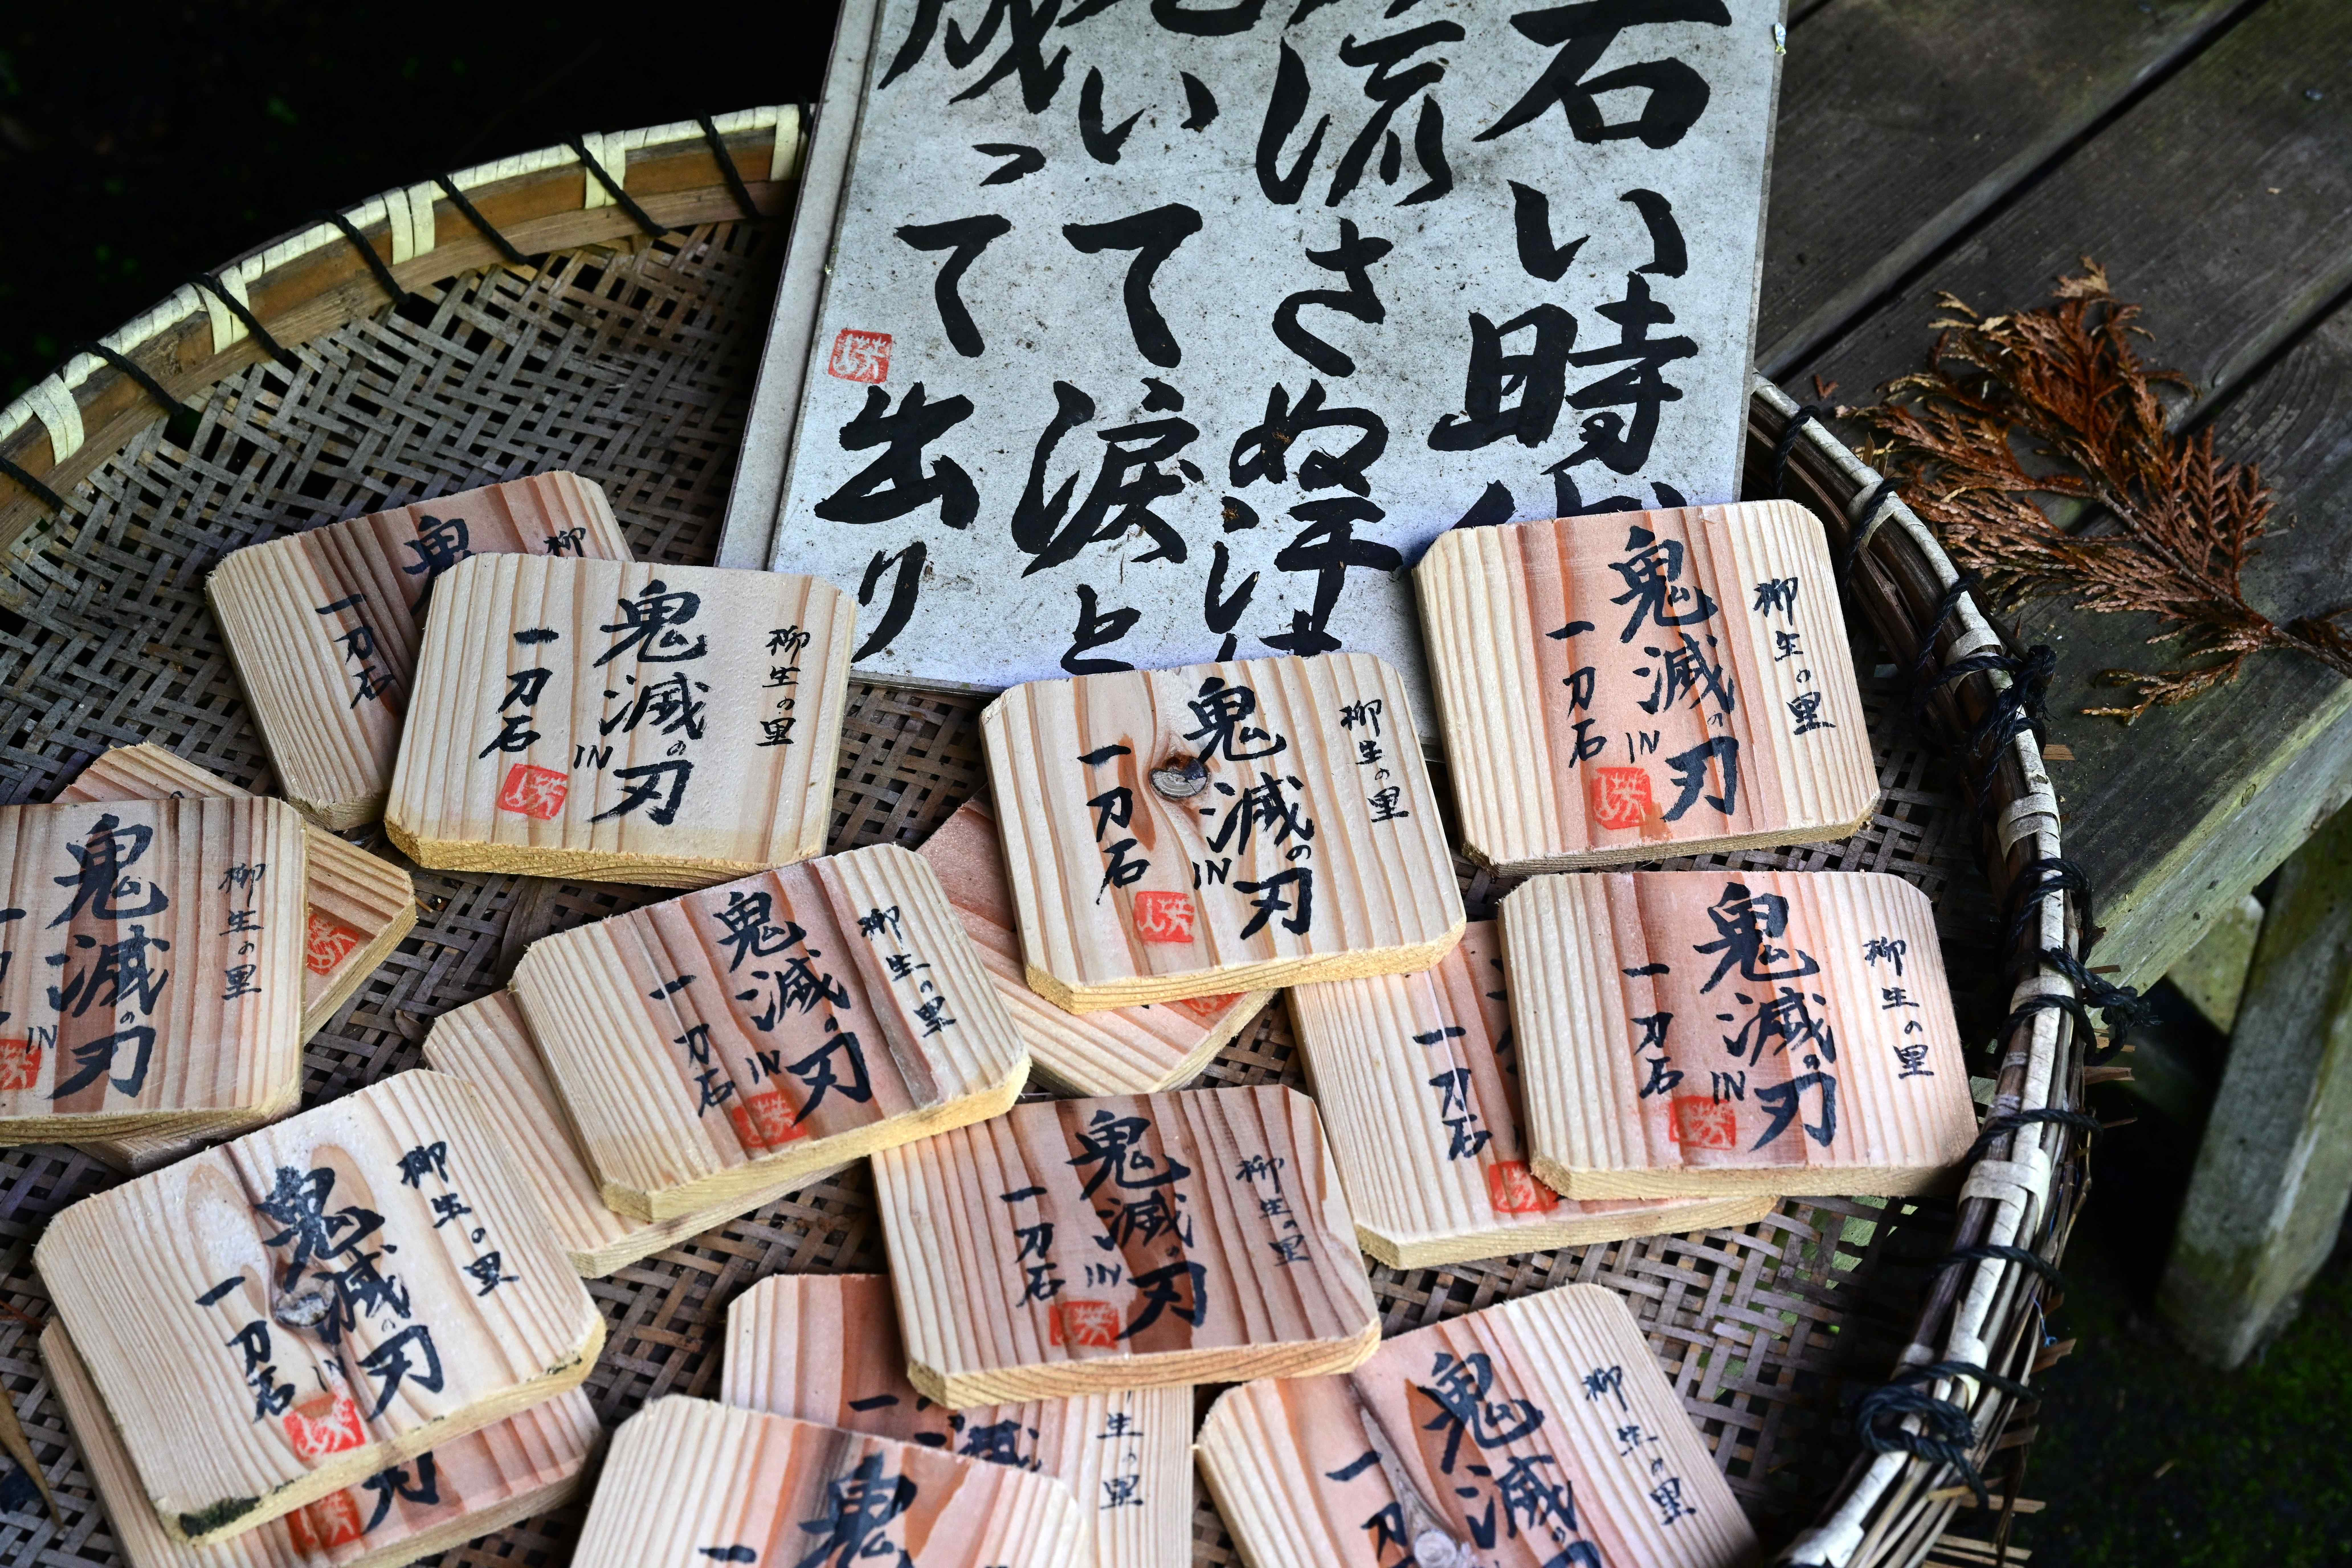 い時
流さぬ
いて涙と
って出り
柳
鬼
一刀石
柳生の里
鬼滅の刃
IN
一刀石
柳生の里
鬼滅の刃
IN
一刀石
柳生の里
鬼滅の刃
IN
一刀石
柳生の里
鬼滅の刃
IN
柳生の里
鬼滅の刃
IN
一刀石
柳生の里
鬼滅の刃
IN
一刀石
一刀石
柳生の里
鬼滅の刃
IN
一刀石
柳生の里
鬼滅の刃
IN
一刀石
刃
生の里
滅
一
鬼
柳生の里
鬼滅の
一刀